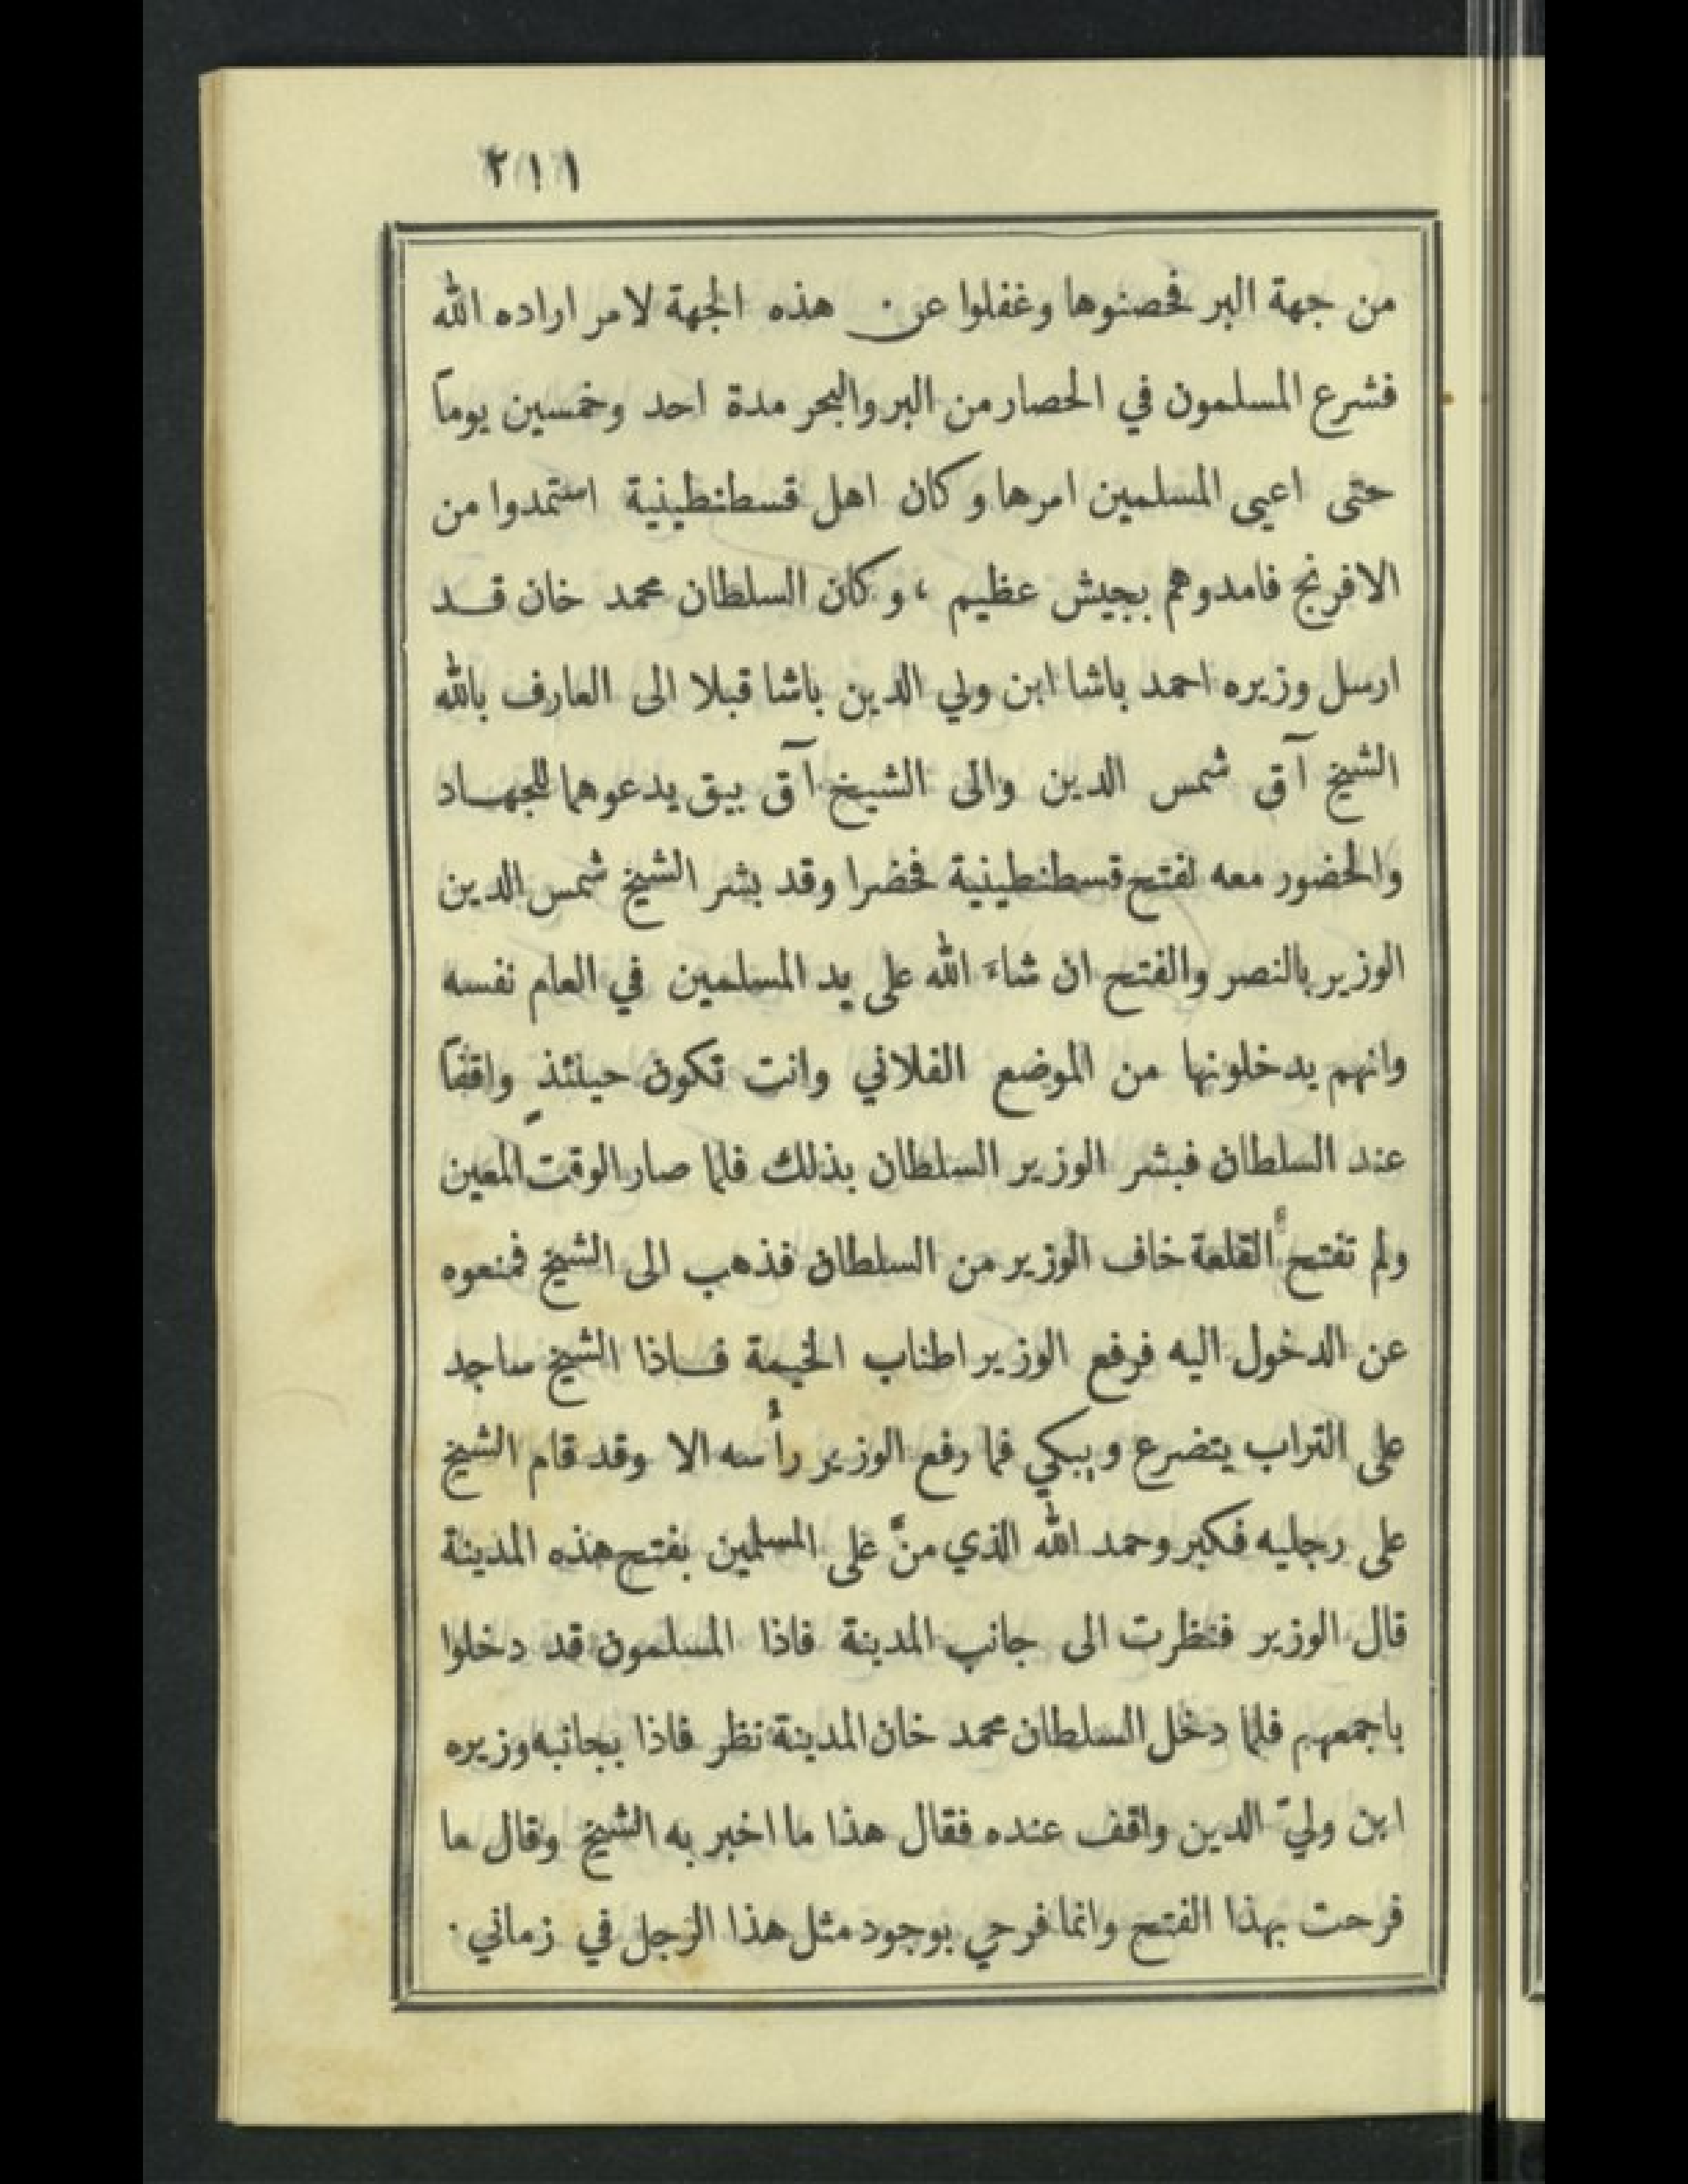 ٢١١
من جهة البر فحصنوها وغفلوا عن هذه الجهة لامر اراده الله
فشرع المسلمون في الحصار من البر والبحر مدة احد وخمسين يوماً
حتى اعيى المسلمين امرها وكان اهل قسطنطينية استمدوا من
الافرنج فامدوهم بجيش عظيم ، وكان السلطان محمد خان قد
ارسل وزيره احمد باشا ابن ولي الدين باشا قبلا الى العارف بالله
الشيخ آق شمس الدين والى الشيخ آق بيق يدعوهما للجهاد
والحضور معه لفتح قسطنطينية فحضرا وقد بشر الشيخ شمس الدين
الوزير بالنصر والفتح ان شاء الله على يد المسلمين في العام نفسه
وانهم يدخلونها من الموضع الفلاني وانت تكون حينئذٍ واقفاً
عند السلطان فبشر الوزير السلطان بذلك فلما صار الوقت المعين
ولم تفتح القلعة خاف الوزير من السلطان فذهب الى الشيخ فمنعوه
عن الدخول اليه فرفع الوزير اطناب الخيمة فاذا الشيخ ساجد
على التراب يتضرع ويبكي فما رفع الوزير رأسه الا وقد قام الشيخ
على رجليه فكبر وحمد الله الذي منَّ على المسلمين بفتح هذه المدينة
قال الوزير فنظرت الى جانب المدينة فاذا المسلمون قد دخلوا
باجمعهم فلما دخل السلطان محمد خان المدينة نظر فاذا بجانبه وزيره
ابن وليّ الدين واقف عنده فقال هذا ما اخبر به الشيخ وقال ما
فرحت بهذا الفتح وانما فرحي بوجود مثل هذا الرجل في زماني ٠